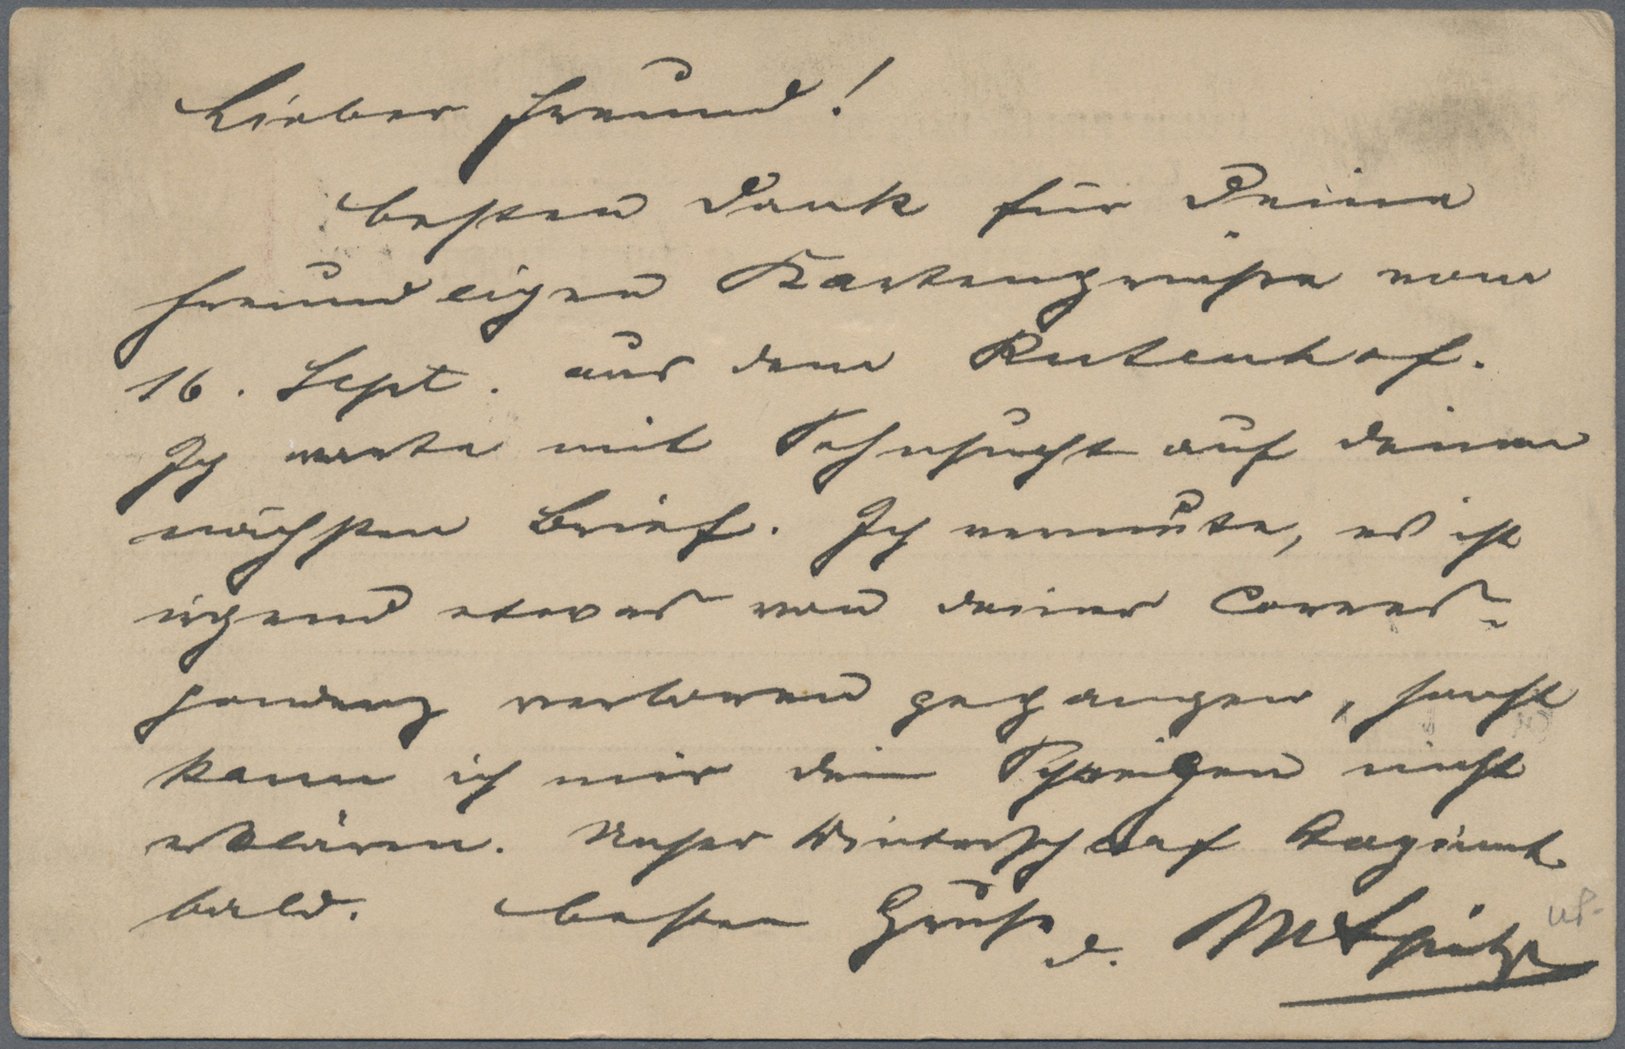 Lieber Freund!
besten Dank für Deine
freundligen Kartengrüße vom
16. Sept. aus dem Rutenhof.
Ich warte mit Sehnsucht auf deinen
nächsten Brief. Ich vermute, es ist
irgend etwas von deiner Corres-
pondenz verloren gegangen, sonst
kann ich mir dein Schweigen nicht
erklären. Unser Winterschlaf beginnt
bald. besten Gruß
d. M Spitz